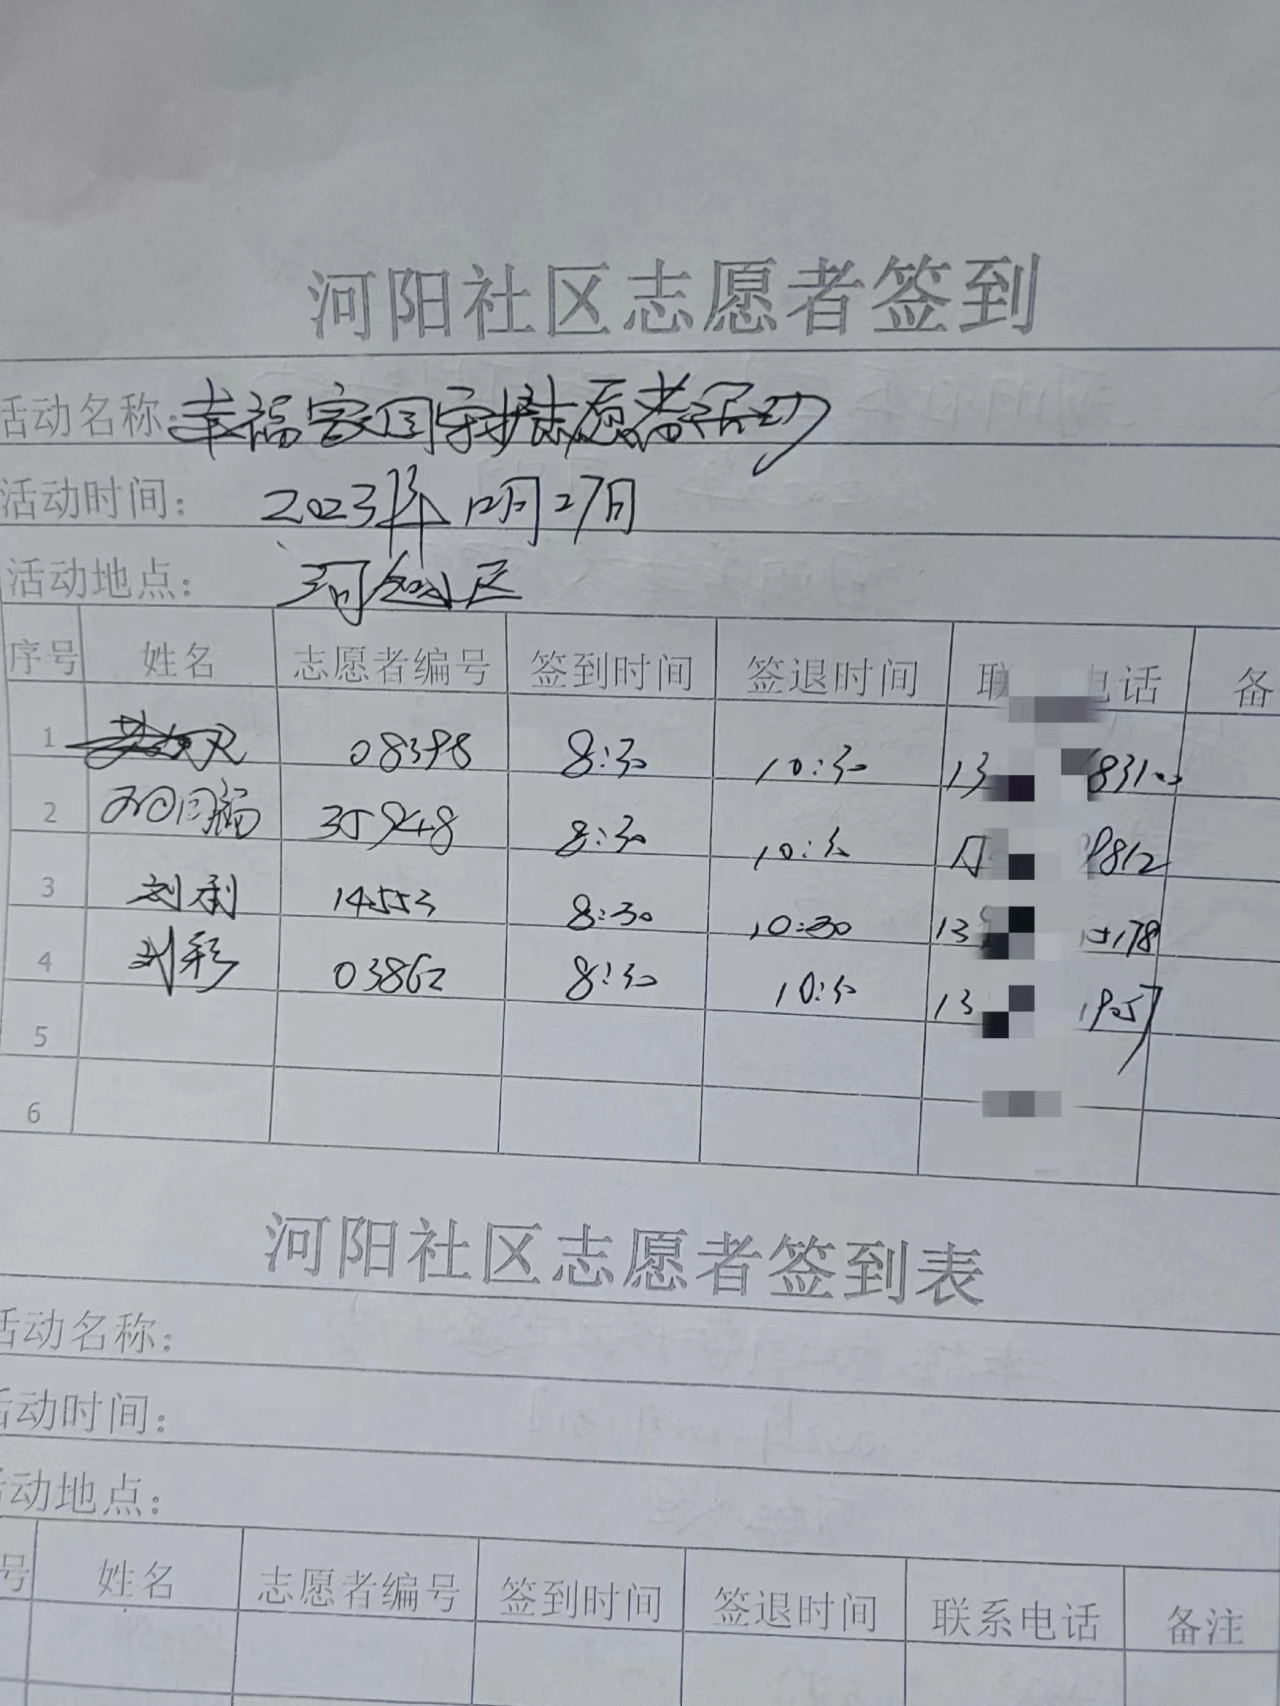 河阳社区志愿者签到
活动名称:幸福家园守护志愿者活动
活动时间: 2023年12月27日
活动地点: 河阳社区
序号 姓名 志愿者编号 签到时间 签退时间 联 电话 备
1 08398 8:30 10:30 13 83100
2 35948 8:30 10:30 9812
3 刘利 14553 8:30 10:30 13 5178
4 刘彩 03862 8:30 10:30 13 19057
5
6
河阳社区志愿者签到表
活动名称:
活动时间:
活动地点:
号 姓名 志愿者编号 签到时间 签退时间 联系电话 备注